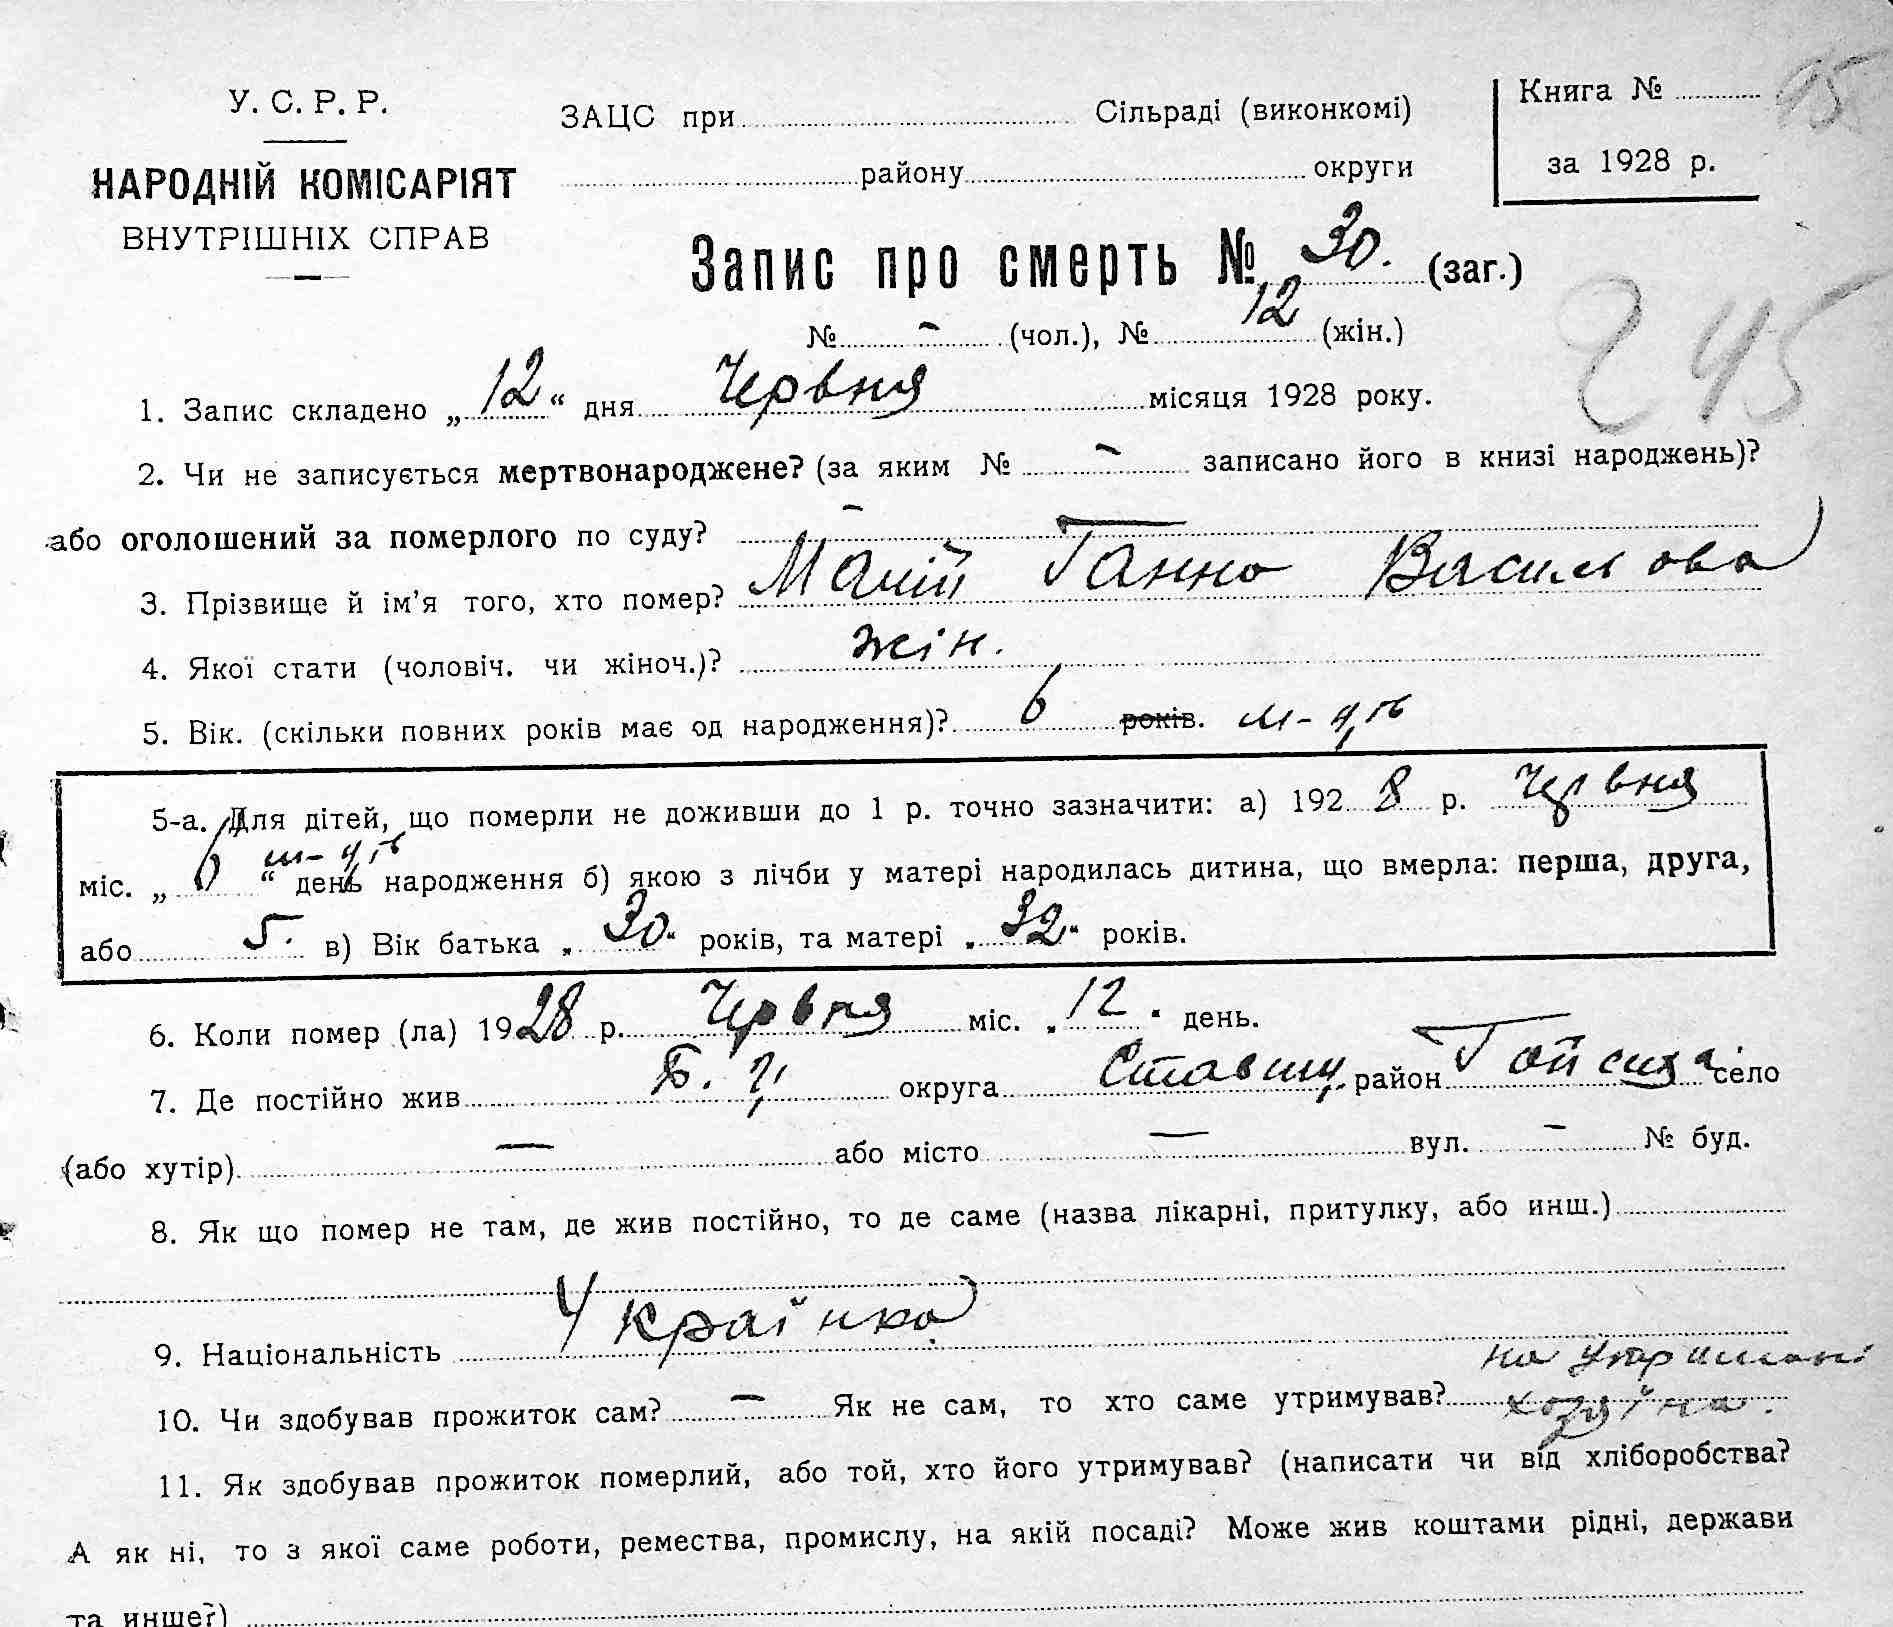 У. С. Р. Р.
НАРОДНІЙ КОМІСАРІЯТ
ВНУТРІШНІХ СПРАВ
ЗАЦС при Сільраді (виконкомі)
району округи
Книга № 45
за 1928 р.
Запис про смерть № 30. (заг.)
№ – (чол.), № 12 (жін.)
245
1. Запис складено „12“ дня Червня місяця 1928 року.
2. Чи не записується мертвонароджене? (за яким № – записано його в книзі народжень)?
або оголошений за померлого по суду? –
3. Прізвище й ім'я того, хто помер? Ганна Василова
4. Якої стати (чоловіч. чи жіноч.)? жін.
5. Вік. (скільки повних років має од народження)? 6 років. м-ців
5-а. Для дітей, що померли не доживши до 1 р. точно зазначити: а) 1928 р. Червня
міс. „6 м-ців“ день народження б) якою з лічби у матері народилась дитина, що вмерла: перша, друга,
або 5. в) Вік батька „30“ років, та матері „32“ років.
6. Коли помер (ла) 1928 р. Червня міс. „12“ день.
7. Де постійно жив Б. Ц. округа Ставищ. район Гейсиха село
(або хутір) — або місто — вул. – № буд.
8. Як що помер не там, де жив постійно, то де саме (назва лікарні, притулку, або инш.)
9. Національність Українка
10. Чи здобував прожиток сам? – Як не сам, то хто саме утримував? на утримані
хозяїна.
11. Як здобував прожиток померлий, або той, хто його утримував? (написати чи від хліборобства?
А як ні, то з якої саме роботи, ремества, промислу, на якій посаді? Може жив коштами рідні, держави
та инше?)